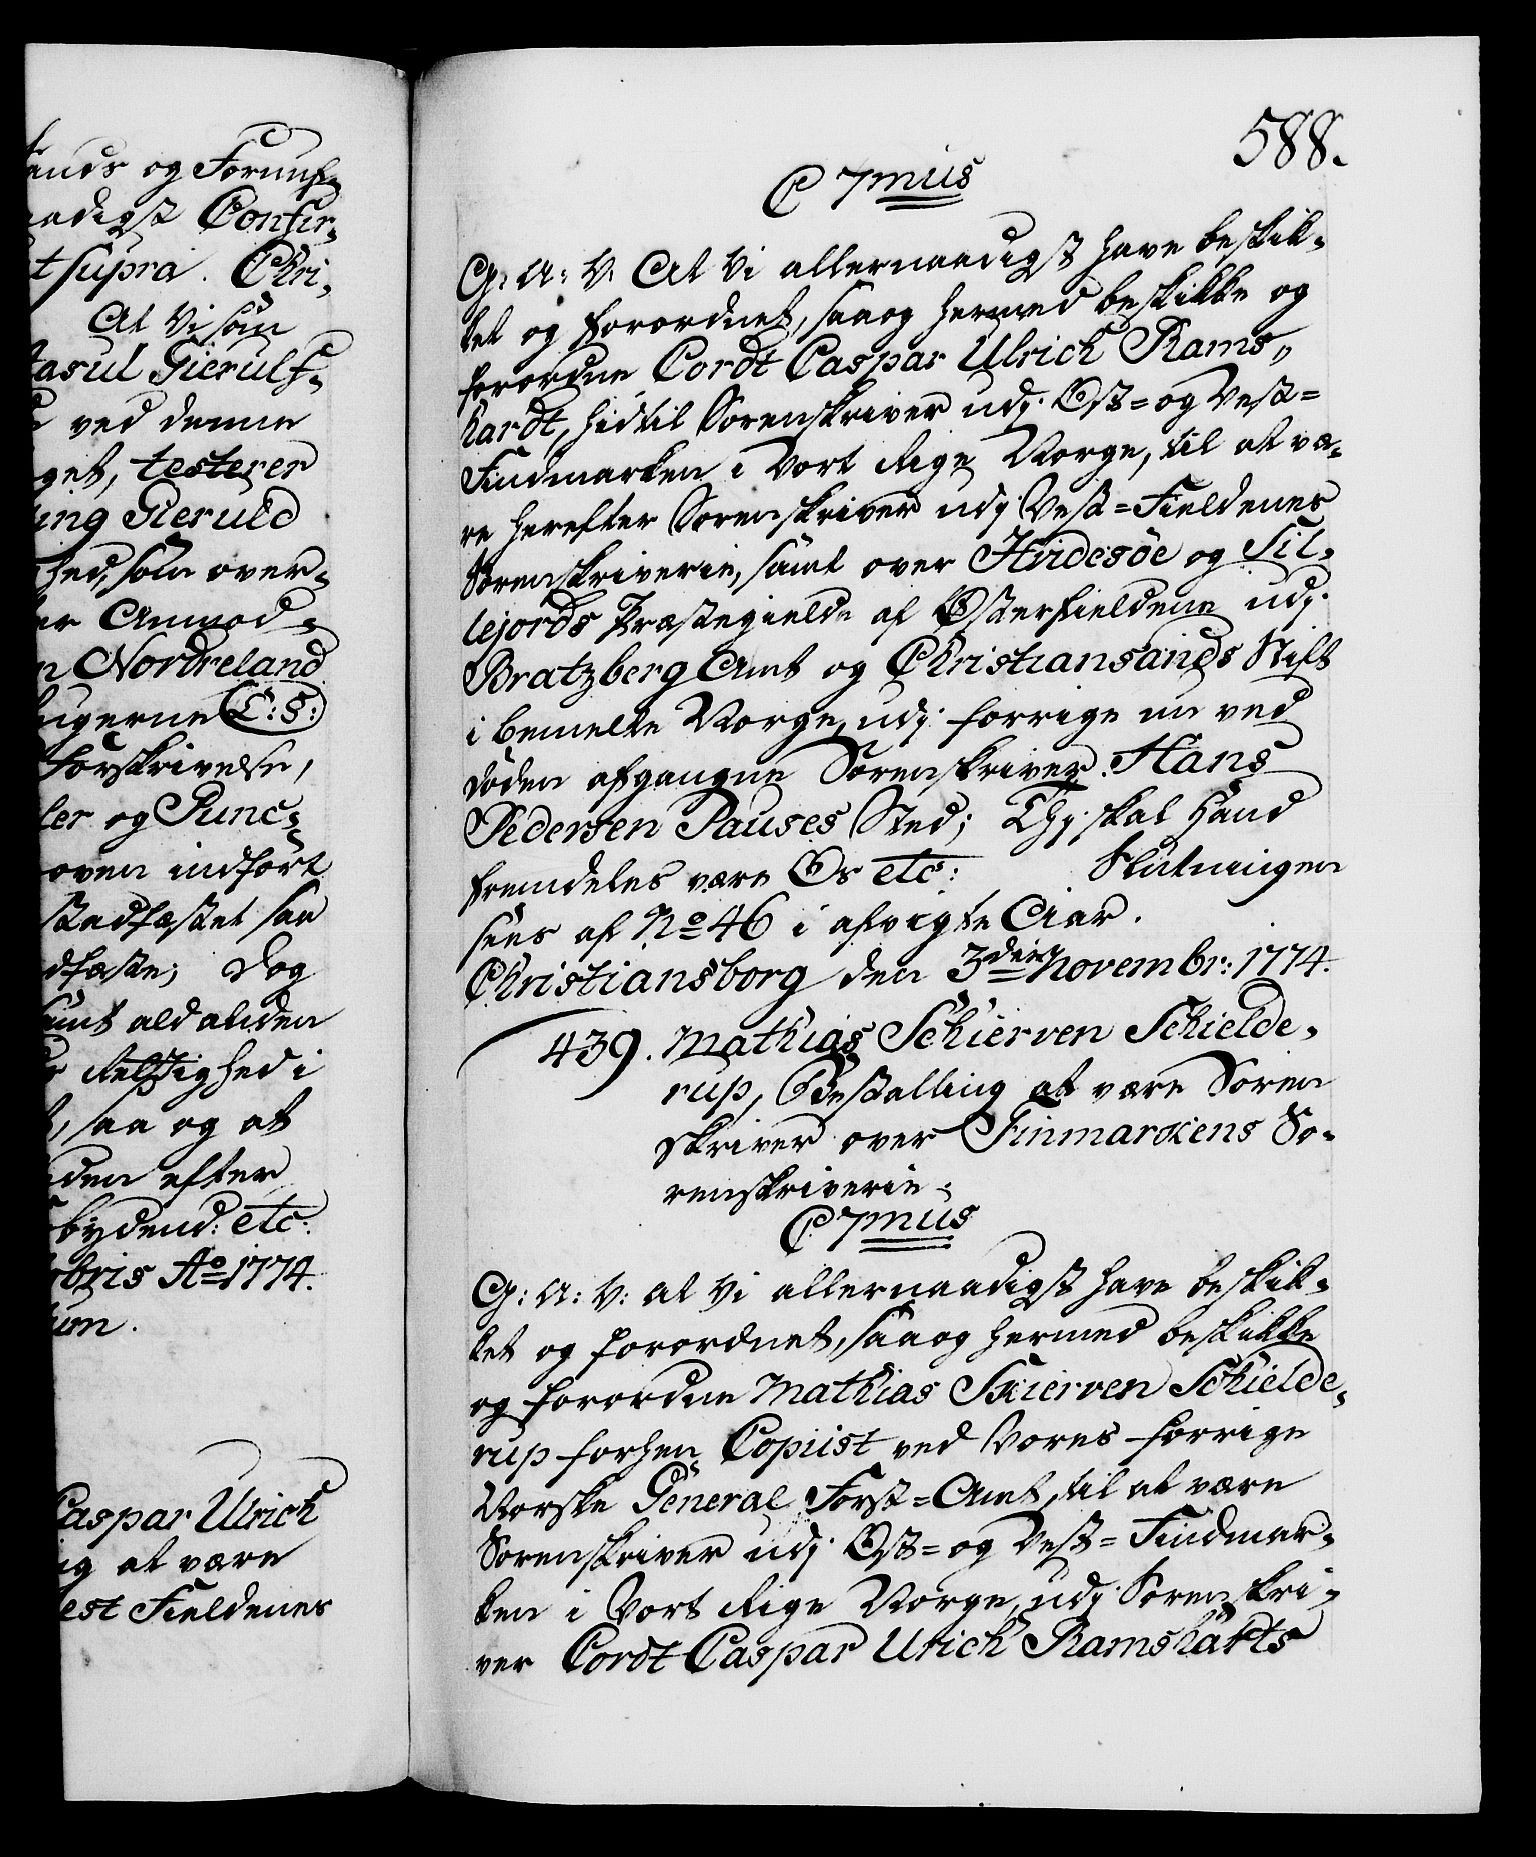 ands og Fornuf-
aadigst Confir-
t supra. Chri-
At Vi som
tasul Gierulf-
ved denne
get, testerer
ing Gieruld
hed, som over-
er Anmod-
n Nordreland
ugerne (L: S:)
Forskrivelse,
ler og Punc-
oven indført
stadfæstet saa
dfæste; Dog
samt ald anden
Rettighed i
saa og at
den efter
bydend: etc:
bris Ao 1774.
Caspar Ulrich
ig at være
est Fieldenes
588.
C 7mus
G: A: V: At Vi allernaadigst have beskik-
ket og forordnet, saa og hermed beskikke og
forordne Cordt Caspar Ulrich Rams-
hardt, hidtil Sorenskriver udj Øst- og Vest-
Findmarken i Vort Rige Norge, til at væ-
re herefter Sorenskriver udj Vest-Fieldenes
Sorenskriverie, samt over Hvidesöe og Sil-
lejords Præstegielde af Østerfieldene udj
Bratzberg Amt og Christiansands Stift
i bemelte Norge, udj forrige nu ved
Døden afgangne Sorenskriver Hans
Pedersen Pauses Sted; Thj skal Hand
fremdeles være Os etc: Slutningen
sees af No 46 i afvigte Aar.
Christiansborg den 3die Novembr: 1774.
439. Mathias Schierven Schielde-
rup, Bestalling at være Soren
skriver over Finmarkens So-
renskriverie.
C 7mus
G: A: V: At Vi allernaadigst have beskik-
ket og forordnet, saa og hermed beskikke
og forordne Mathias Skierven Schielde-
rup forhen Copiist ved Vores forrige
Norske General Forst-Amt, til at være
Sorenskriver udj Øst- og Vest-Findmar-
ken i Vort Rige Norge, udj Sorenskri-
ver Cordt Caspar Ulrich Ramsharts